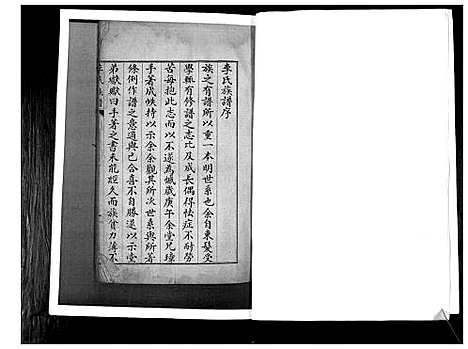 李氏族譜序
族之有譜所以重一本明世系也余自束髮受
學輒有修譜之志比及長偶得怯症不耐勞
苦每抱此志而以不遂為憾歲庚午余堂兄璋
手著成帙持以示余余觀其所次世系與所著
條例作譜之意適與己合喜不自勝遂以示堂
弟獻猷曰手著之書未能經久而族貧力薄不